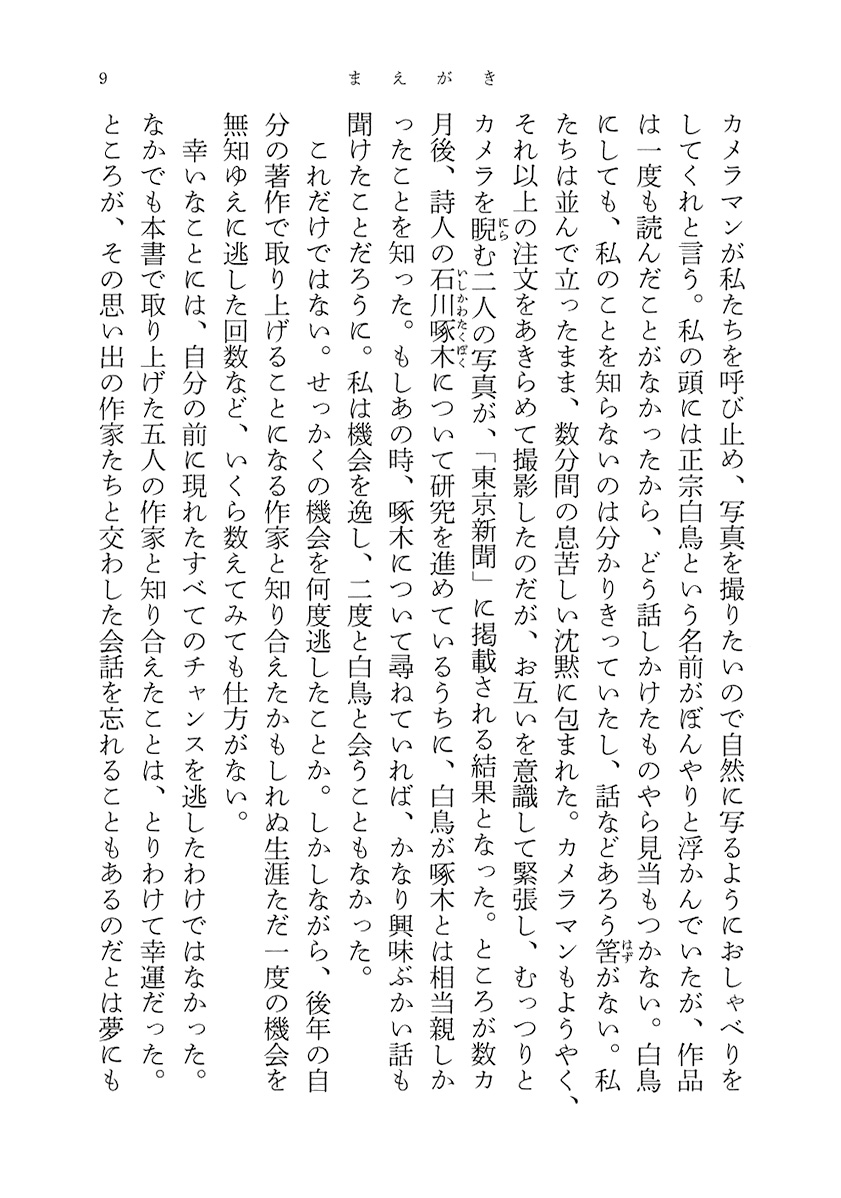 まえがき
9
カメラマンが私たちを呼び止め、写真を撮りたいので自然に写るようにおしゃべりを
してくれと言う。私の頭には正宗白鳥という名前がぼんやりと浮かんでいたが、作品
は一度も読んだことがなかったから、どう話しかけたものやら見当もつかない。白鳥
にしても、私のことを知らないのは分かりきっていたし、話などあろう筈がない。私
たちは並んで立ったまま、数分間の息苦しい沈黙に包まれた。カメラマンもようやく、
それ以上の注文をあきらめて撮影したのだが、お互いを意識して緊張し、むっつりと
カメラを睨む二人の写真が、「東京新聞」に掲載される結果となった。ところが数カ
月後、詩人の石川啄木について研究を進めているうちに、白鳥が啄木とは相当親しか
ったことを知った。もしあの時、啄木について尋ねていれば、かなり興味ぶかい話も
聞けたことだろうに。私は機会を逸し、二度と白鳥と会うこともなかった。
これだけではない。せっかくの機会を何度逃したことか。しかしながら、後年の自
分の著作で取り上げることになる作家と知り合えたかもしれぬ生涯ただ一度の機会を
無知ゆえに逃した回数など、いくら数えてみても仕方がない。
幸いなことには、自分の前に現れたすべてのチャンスを逃したわけではなかった。
なかでも本書で取り上げた五人の作家と知り合えたことは、とりわけて幸運だった。
ところが、その思い出の作家たちと交わした会話を忘れることもあるのだとは夢にも